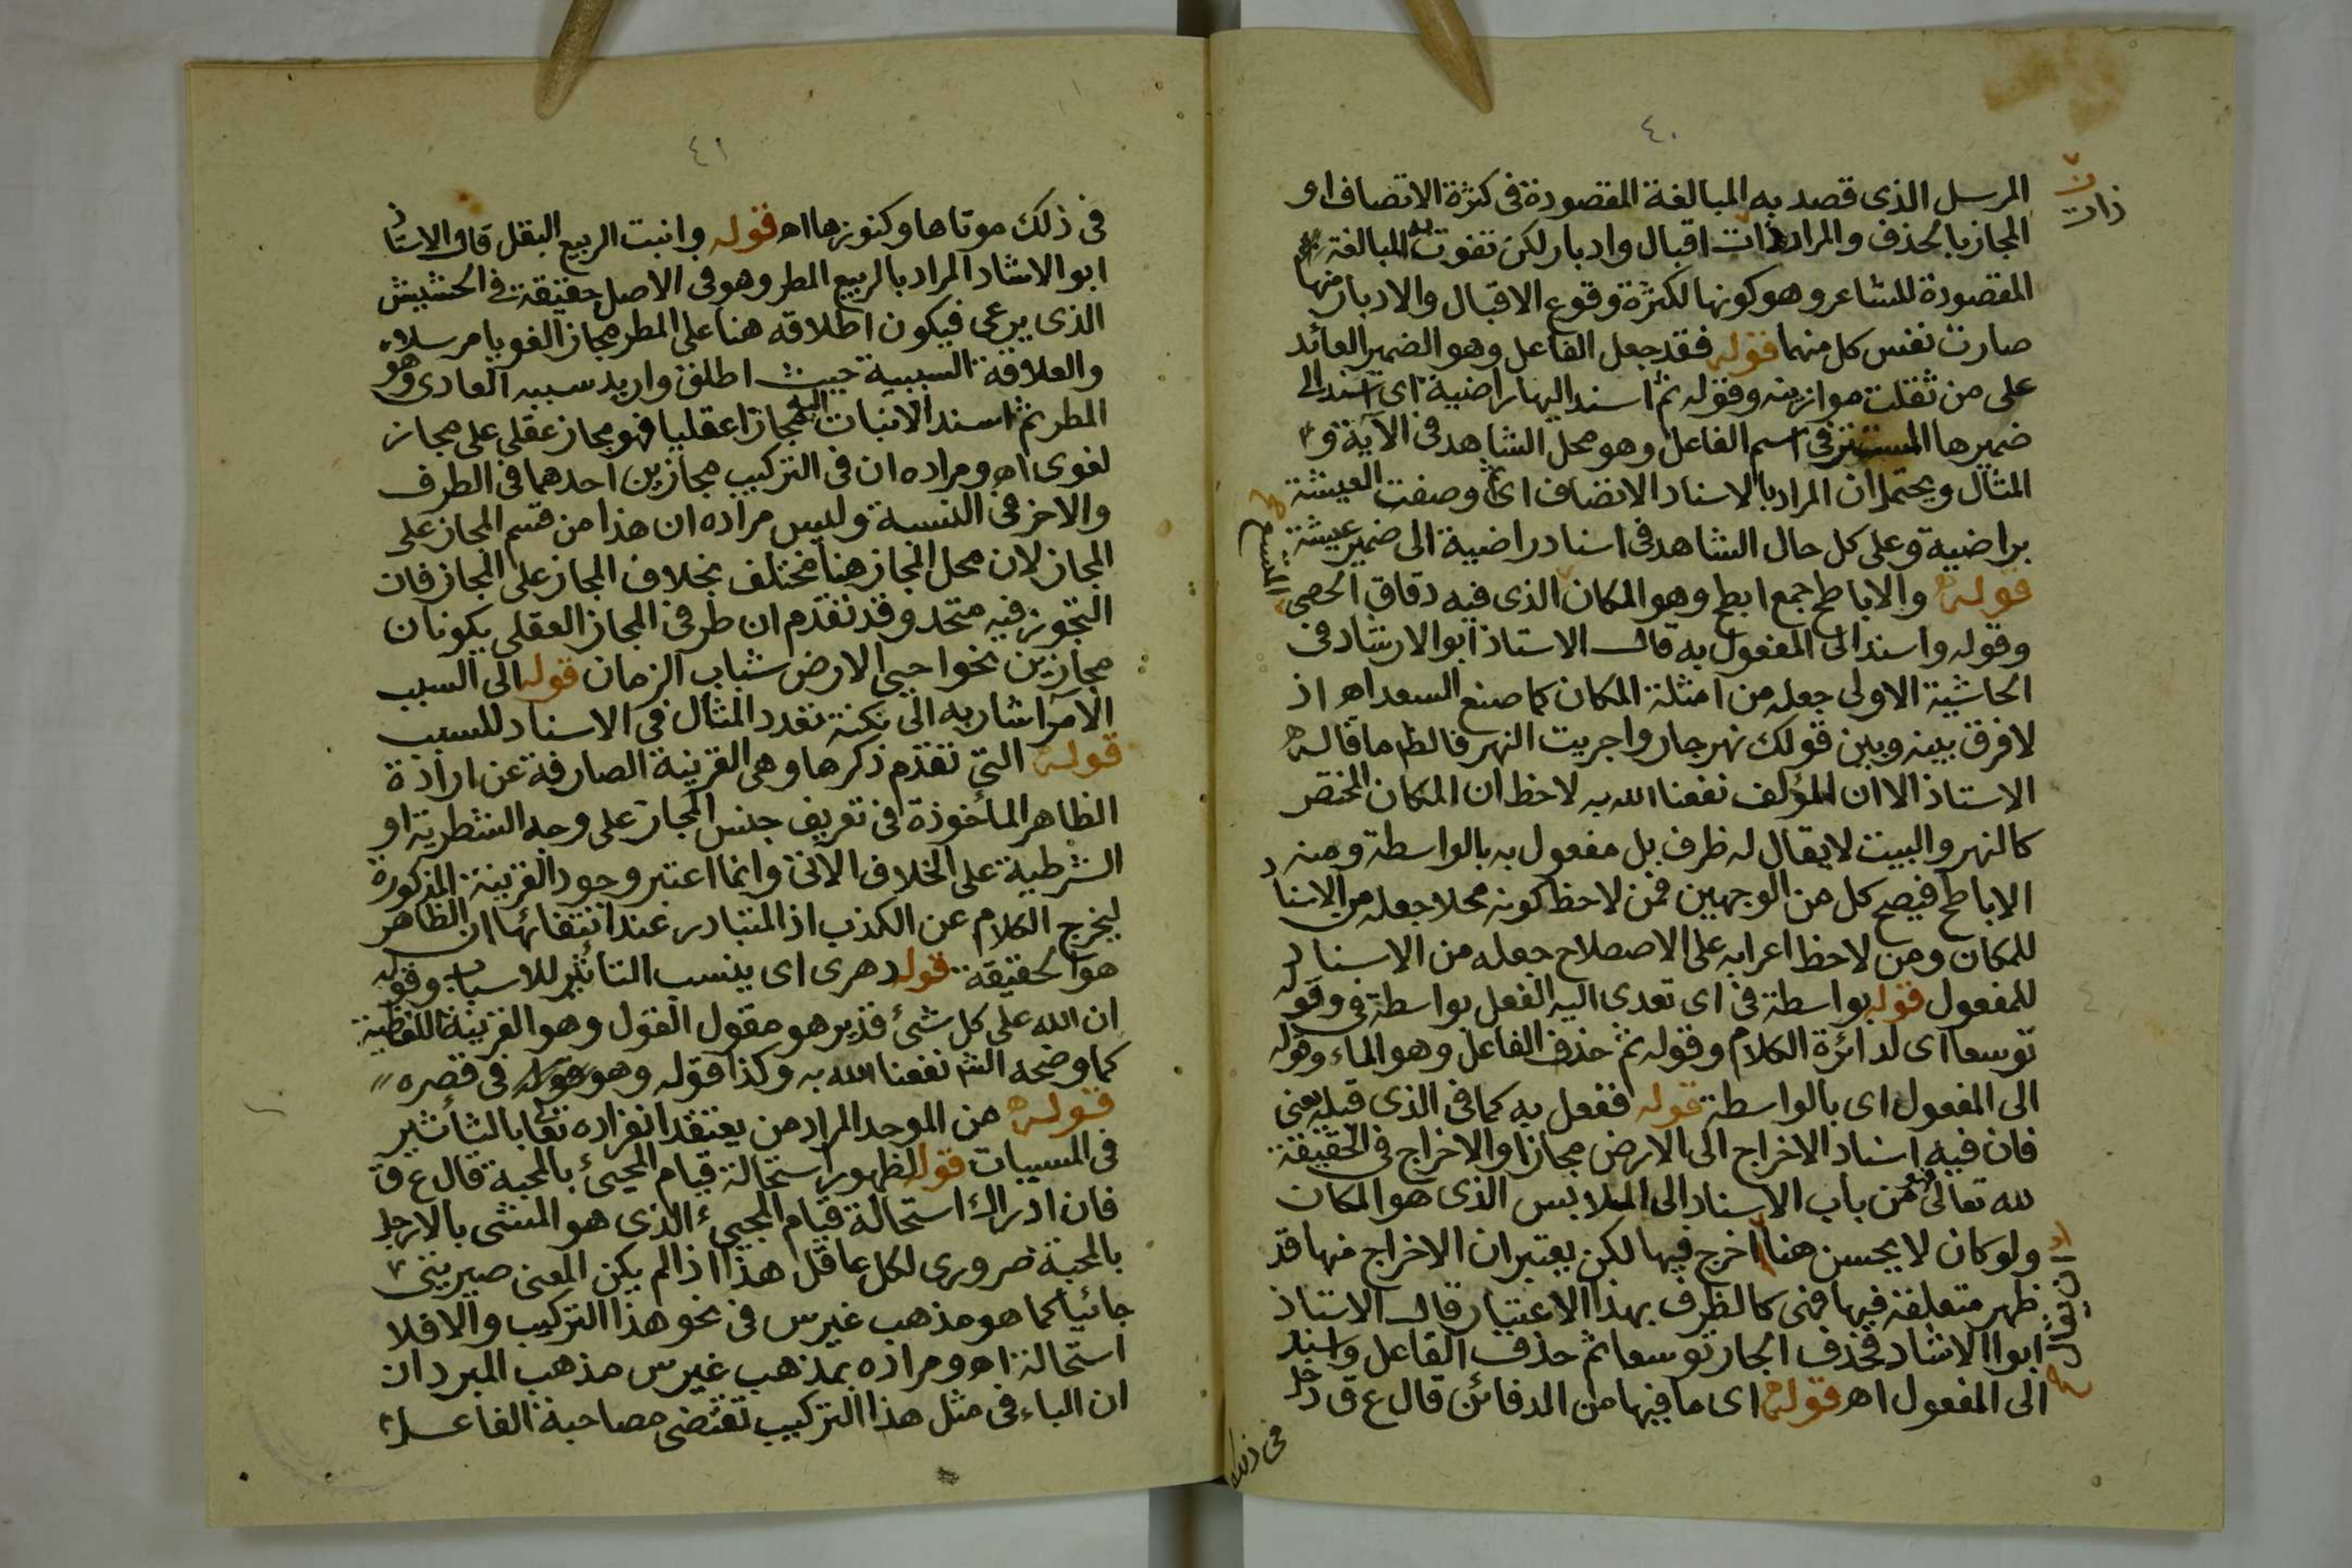 ٤٠
المرسل الذى قصد به المبالغة المقصودة فى كثرة الاتصاف او
المجاز بالحذف والمراد ذات اقبال وادبار لكن تفوت به المبالغة
ذات
المقصودة للشاعر وهو كونها لكثرة وقوع الاقبال والادبار منها
صارت نفس كل منهما قوله فقد جعل الفاعل وهو الضمير العائد
على من ثقلت موازينه وقوله ثم اسند اليها راضية اى اسند الى
ضميرها المستتر فى اسم الفاعل وهو محل الشاهد فى الآية و
المثال ويحتمل ان المراد بالاسناد الاتصاف اى وصفت العيشة
براضية وعلى كل حال الشاهد فى اسناد راضية الى ضمير عيشة
قوله والاباطح جمع ابطح وهو المكان الذى فيه دقاق الحصى
المتسع
وقوله واسند الى المفعول به قال الاستاذ ابو الارشاد فى
الحاشية الاولى جعله من امثلة المكان كما صنع السعد اهـ اذ
لا فرق بينه وبين قولك نهر جار واجريت النهر فالظ ما قاله
الاستاذ الا ان المؤلف نفعنا الله به لاحظ ان المكان المختص
كالنهر والبيت لا يقال له ظرف بل مفعول به بالواسطة ومنه
الاباطح فيصح كل من الوجهين فمن لاحظ كونه محلا جعله من الاسناد
للمكان ومن لاحظ اعرابه على الاصطلاح جعله من الاسناد
للمفعول قوله بواسطة فى اى تعدى اليه الفعل بواسطة فى وقوله
توسعا اى لدائرة الكلام وقوله ثم حذف الفاعل وهو الماء وقوله
الى المفعول اى بالواسطة قوله ففعل به كما فى الذى قبله يعنى
فان فيه اسناد الاخراج الى الارض مجازا والاخراج فى الحقيقة
لله تعالى فهو من باب الاسناد الى الملابس الذى هو المكان
ولو كان لا يحسن هنا اخرج فيها لكن يعتبر ان الاخراج منها قد
ان يقال
ظهر متعلقه فيها فهى كالظرف بهذا الاعتبار قال الاستاذ
ابوا الاشاد فحذف الجار توسعا ثم حذف الفاعل واسند
الى المفعول اهـ قوله اى ما فيها من الدفائن قال ع ق دخل
فى ذلك
٤١
فى ذلك موتاها وكنوزها اهـ قوله وانبت الربيع البقل قال الاستاذ
ابو الاشاد المراد بالربيع المطر وهو فى الاصل حقيقة فى الحشيش
الذى يرعى فيكون اطلاقه هنا على المطر مجازا لغويا مرسلا
والعلاقة السببية حيث اطلق واريد سببه العادى وهو
المطر ثم اسند الانبات اليه مجازا عقليا فهو مجاز عقلى على مجاز
لغوى اهـ ومراده ان فى التركيب مجازين احدهما فى الطرف
والاخر فى النسبة وليس مراده ان هذا من قسم المجاز على
المجاز لان محل المجاز هنا مختلف بخلاف المجاز على المجاز فان
التجوز فيه متحد وقد تقدم ان طرفى المجاز العقلى يكونان
مجازين نحو احيى الارض شباب الزمان قوله الى السبب
الآمر اشار به الى نكتة تعدد المثال فى الاسناد للسبب
قوله التى تقدم ذكرها وهى القرينة الصارفة عن ارادة
الظاهر المأخوذة فى تعريف جنس المجاز على وجه الشطرية او
الشرطية على الخلاف الآتى وانما اعتبر وجود القرينة المذكورة
ليخرج الكلام عن الكذب اذ المتبادر عند انتفائها ان الظاهر
هو الحقيقة قوله دهرى اى ينسب التأثير للاسباب وقوله
ان الله على كل شئ قدير هو مقول القول وهو القرينة اللفظية
كما وضحه الش نفعنا الله به وكذا قوله وهو قوله فى قصره
قوله من الموحد المراد من يعتقد انفراده تعا بالتأثير
فى المسببات قوله لظهور استحالة قيام المجيئ بالمحبة قال ع ق
فان ادراك استحالة قيام المجيئ الذى هو المشى بالارجل
بالمحبة ضرورى لكل عاقل هذا اذا لم يكن المعنى صيرتنى
جائيا كما هو مذهب غير س فى نحو هذا التركيب والا فلا
استحالة اهـ ومراده بمذهب غير س مذهب المبرد ان
ان الباء فى مثل هذا التركيب تقتضى مصاحبة الفاعل